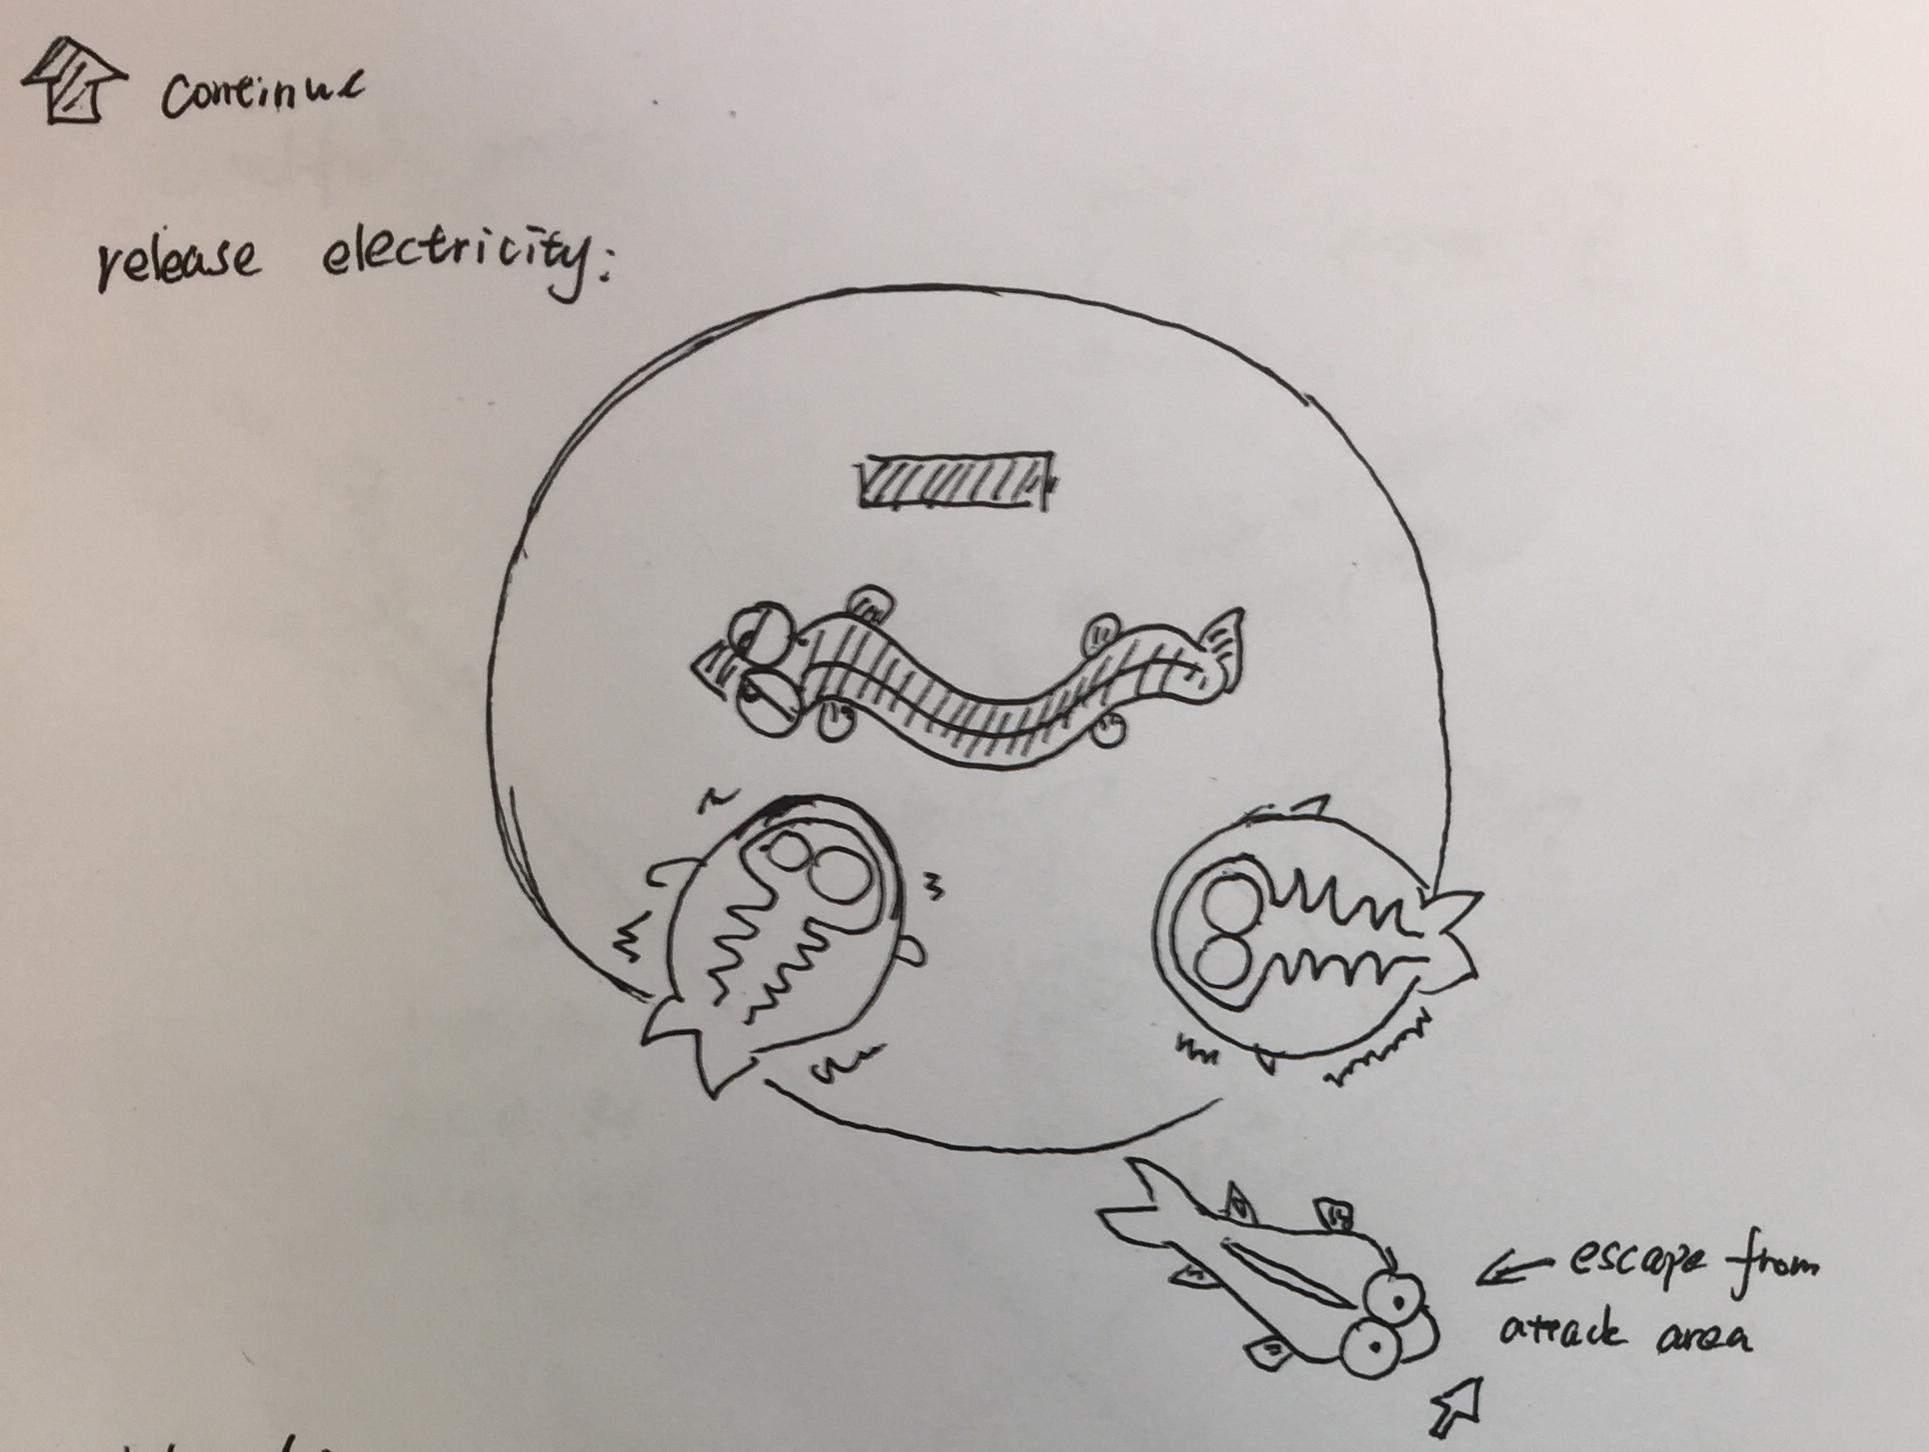 continue
release electricity:
escape from
attack area